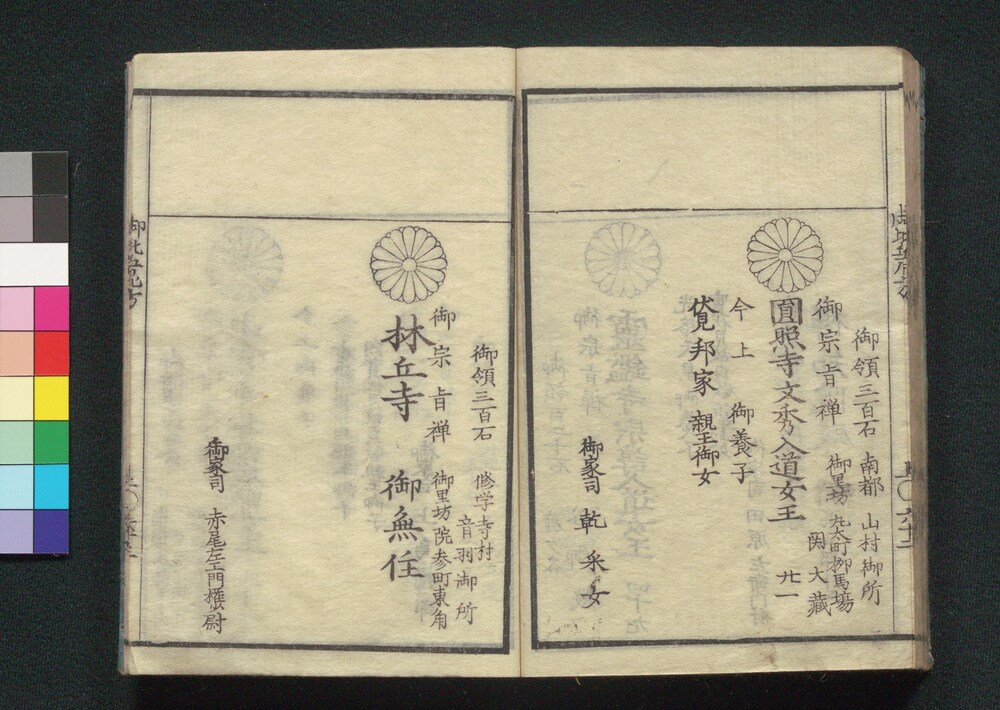 御領三百石 南都 山村御所
御宗旨禅 御里坊 丸太町柳馬場
関大蔵
圓照寺文秀入道女王 廿一
今上 御養子
伏見邦家親王御女
御家司 乾采女
御領三百石 修学寺村
音羽御所
御宗旨禅 御里坊 院参町東角
林丘寺 御無住
御家司 赤尾左工門権尉